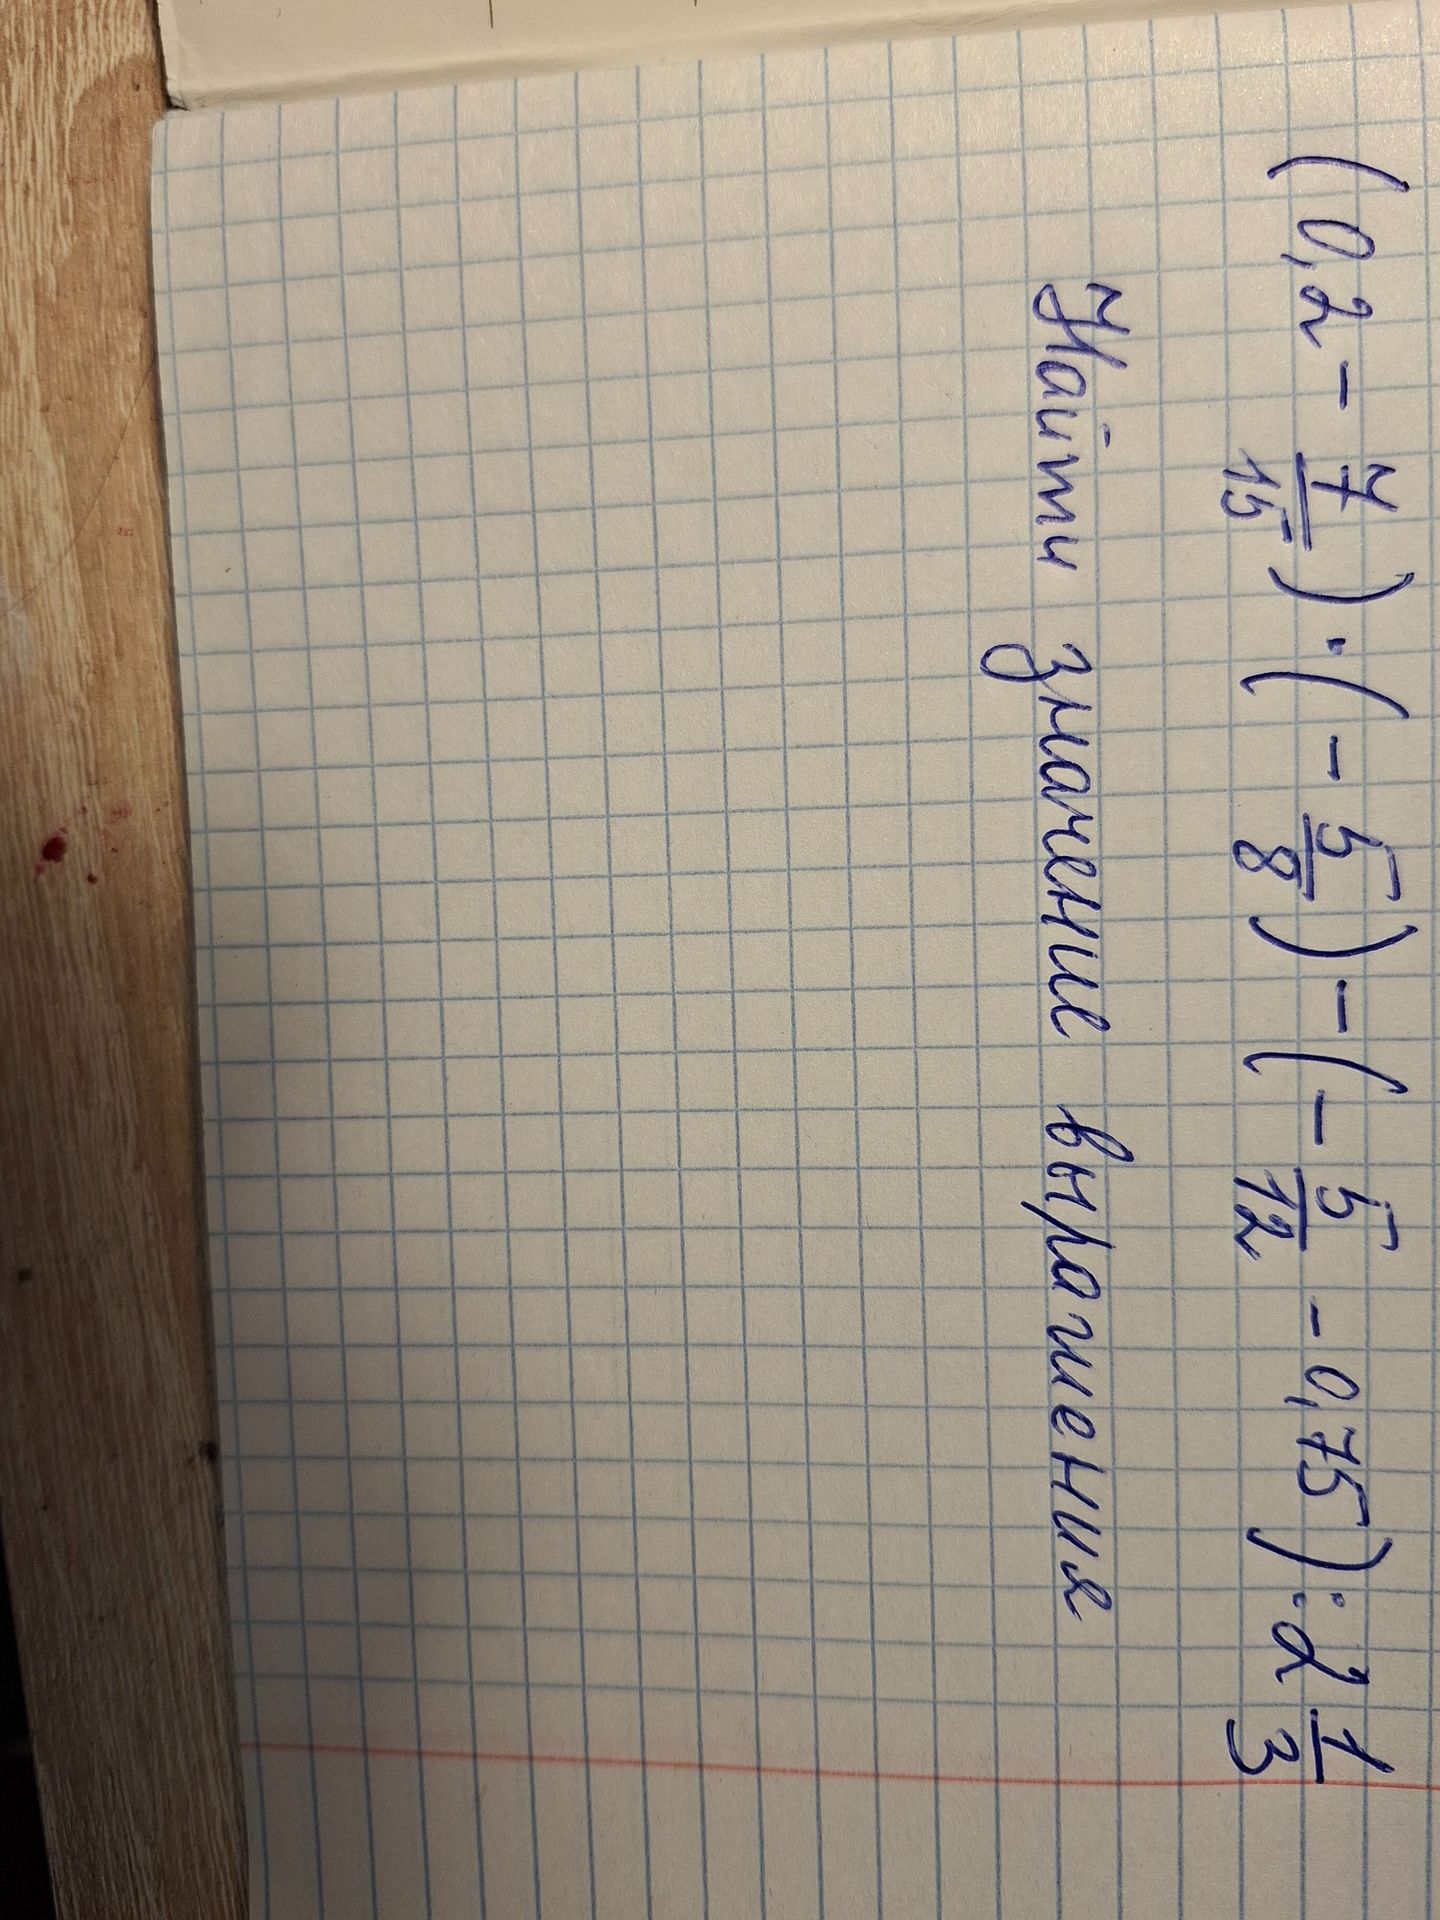 (0,2 - 7/15) · (- 5/8) - (- 5/12 - 0,75) : 2 1/3
Найти значение выражения